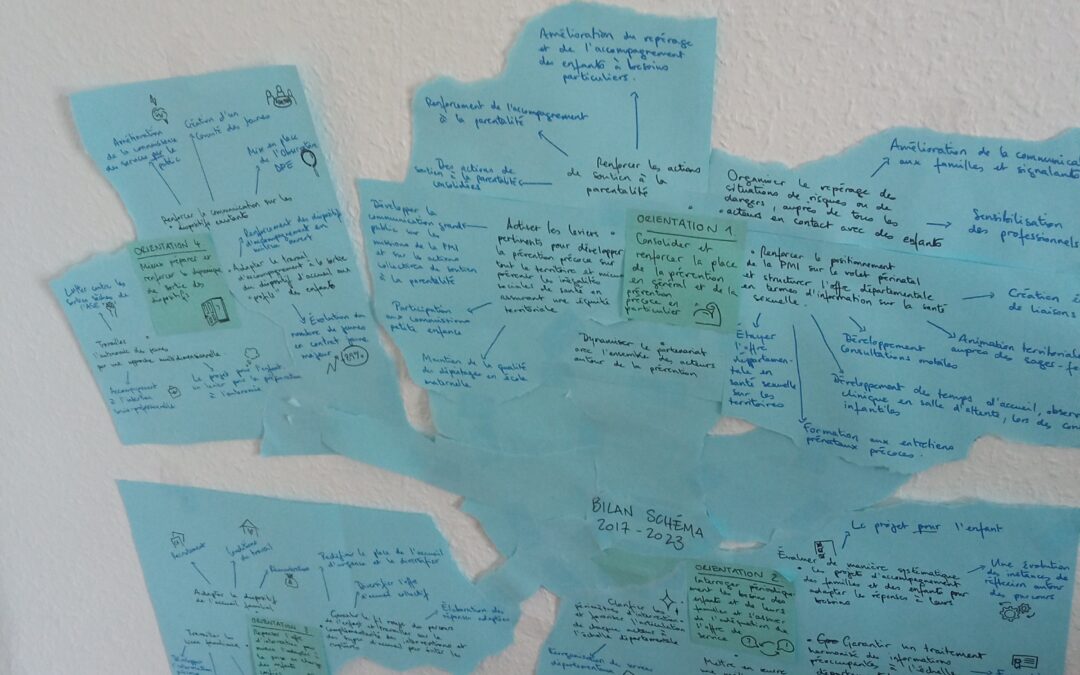 Amélioration du repérage
et de l'accompagnement
des enfants à besoins
particuliers.
Renforcement de l'accompagnement
à la parentalité
Des actions de
soutien à la parentalité
consolidées
Renforcer les actions
de soutien à la
parentalité
Amélioration
de la connaissance
des services par le
public
Création d'un
Comité des jeunes
Mise en place
de l'Observatoire
DPE
Renforcer la communication sur les
dispositifs existants
ORIENTATION 4
Mieux préparer et
renforcer la dynamique
de sortie des
dispositifs
Renforcement des dispositifs
d'accompagnement en
milieu ouvert
Adapter le travail
d'accompagnement à la sortie
du dispositif d'accueil aux
profils des enfants
Évolution du
nombre de jeunes
en contrat jeune
majeur
Lutter contre les
sorties sèches de
l'ASE
Travailler
l'autonomie des jeunes
par une approche multidimensionnelle
Accompagnement
à l'insertion
socio professionnelle
Le projet pour l'enfant
un levier pour la préparation
à l'autonomie
Développer la
communication grand
public sur les
missions de la PMI
et sur les actions
collectives de soutien
à la parentalité
Activer les leviers
pertinents pour développer
la prévention précoce sur
tout le territoire et mieux
prévenir les inégalités
sociales de santé en
assurant une équité
territoriale
Participation
aux commissions
petite enfance
Maintien de la qualité
du dépistage en école
maternelle
ORIENTATION 1
Consolider et
renforcer la place
de la prévention
en général et de la
prévention
précoce en
particulier
Dynamiser le partenariat
avec l'ensemble des acteurs
autour de la prévention
Organiser le repérage des
situations de risques ou de
dangers, auprès de tous les
acteurs en contact avec des enfants
Amélioration de la communica
aux familles et signalants
Sensibilisation
des professionnels
Renforcer le positionnement
de la PMI sur le volet prénatal
et structurer l'offre départementale
en termes d'information sur la santé
sexuelle
Création
de liaisons
Animation territoriale
auprès des sages-fe
Développement
consultations mobiles
Développement des temps d'accueil, observ
clinique en salle d'attente, lors des con
infantiles
Étayer
l'offre
départemen-
tale en
santé sexuelle
sur les
territoires
Formation aux entretiens
prénataux précoces.
BILAN SCHÉMA
2017 - 2023
Recrutement
Conditions
de travail
Rémunération
Adapter le dispositif
de l'accueil familial
Redéfinir la place de l'accueil
d'urgence et le diversifier
Diversifier l'offre
d'accueil collectif
Élaboration de
réponses adaptées
ORIENTATION 3
ORIENTATION 2
Interroger périodique-
ment les besoins des
enfants et de leurs
familles
et l'adéquation de
l'offre de
service
Clarifier les
Réorganisation du service
départemental
Mettre en œuvre
Le projet pour l'enfant
Évaluer de manière systématique
les projets d'accompagnement
des familles et des enfants pour
adapter la réponse à leurs
besoins
Une évolution
des instances de
réflexion autour
des parcours
Garantir un traitement
harmonisé des informations
préoccupantes à l'échelle